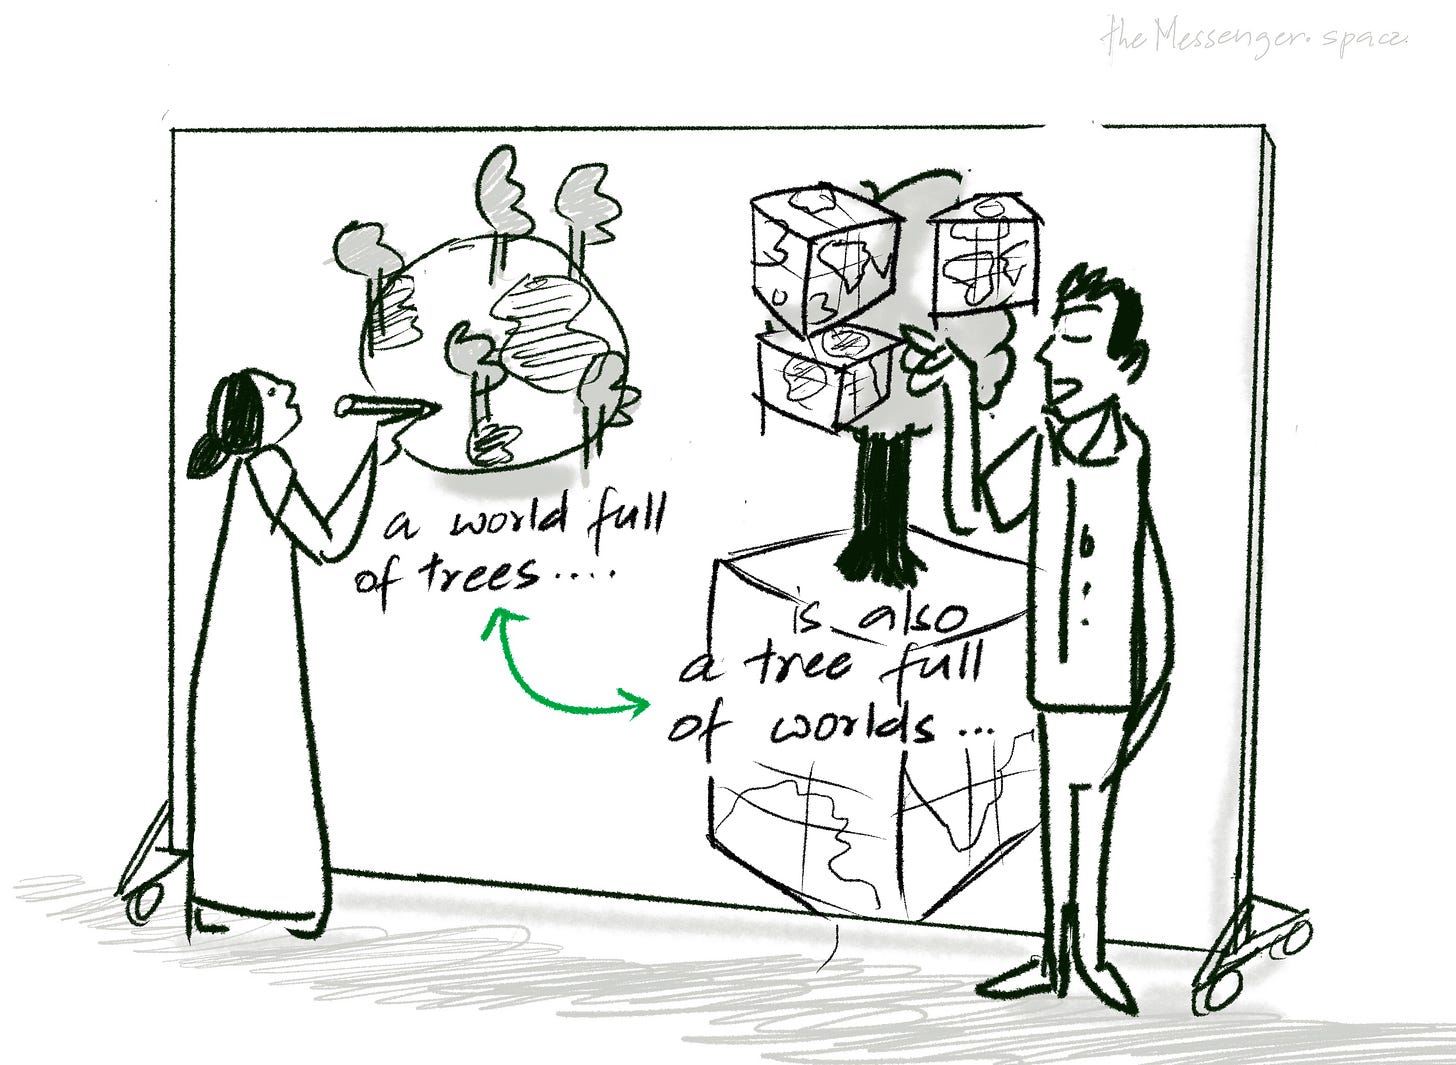 the Messenger. space.
a world full
of trees ....
is also
a tree full
of worlds ...